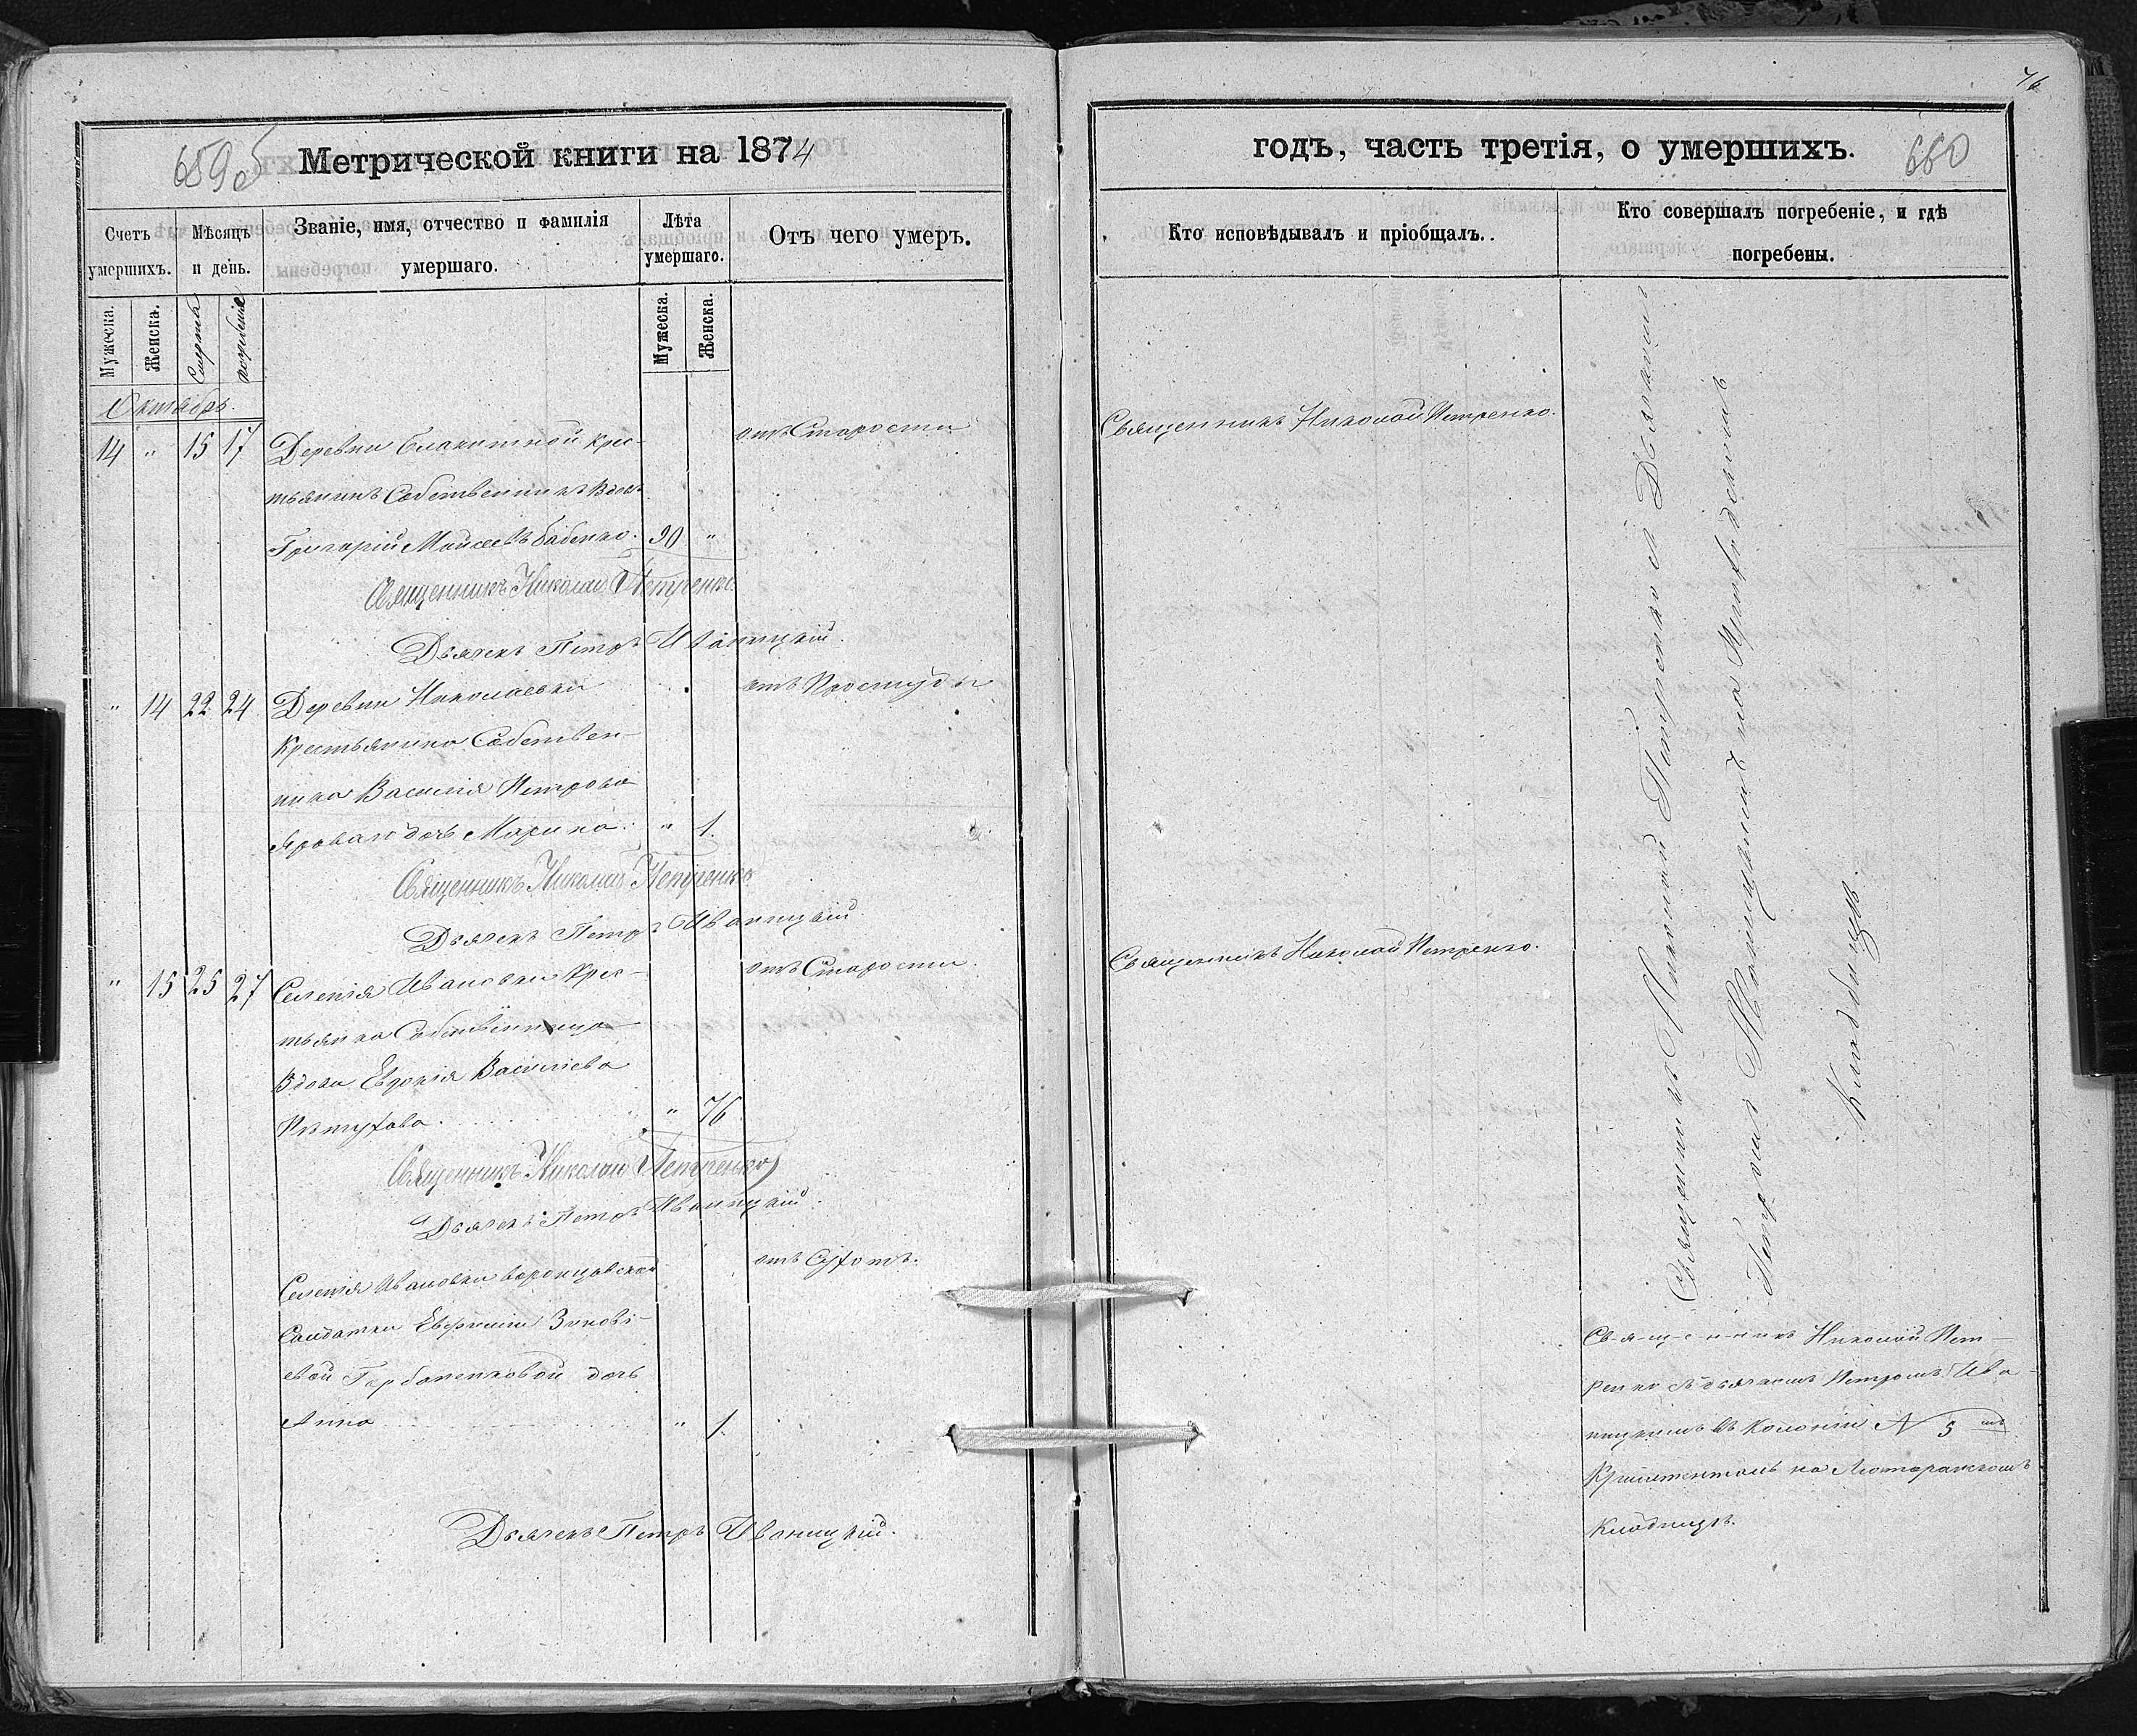 659 об
Метрической книги на 1874
Счетъ умершихъ.
Мѣсяцъ и день.
Званіе, имя, отчество и фамилія умершаго.
Лѣта умершаго.
Отъ чего умеръ.
Мужеска.
Женска.
Смерти
погребенія
Мужеска.
Женска.
Октябрь.
14 „ 15 17 Деревни Блакитной крес- отъ Старости
тьянинъ Собственникъ вдов.
Григорій Моисеевъ Бабенко. 90 „
Священникъ Николай Петренко.
Дьячекъ Петръ Иваницкій.
„ 14 22 24 Деревни Николаевки отъ Простуды
Крестьянина Собствен-
ника Василія Петрова
Яроваго дочь Марина. „ 1.
Священникъ Николай Петренко
Дьячекъ Петръ Иваницкій.
„ 15 25 27 Селенія Ивановки Крес- отъ Старости.
тьянка Собственница
Вдова Евдокія Василіева
Пѣтухова. „ 76
Священникъ Николай Петренко
Дьячекъ Петръ Иваницкій.
Селенія Ивановки отъ Сухотъ.
Солдатки Евфиміи Зинові-
евой Горбаненковой дочь
Анна „ 1.
Дьячекъ Петръ Иваницкій.
76
годъ, часть третія, о умершихъ.
660
Кто исповѣдывалъ и пріобщалъ.
Кто совершалъ погребеніе, и гдѣ погребены.
Священникъ Николай Петренко.
Священникъ Николай Петренко.
Священникъ Николай Петренко съ Дьячкомъ
Петромъ Иваницкимъ на Приходскомъ
Кладбищѣ.
Священникъ Николай Пет-
ренко съ дьячкомъ Петромъ Ива-
ницкимъ въ Колоніи N 5 мъ
на Лютеранскомъ
Кладбищѣ.